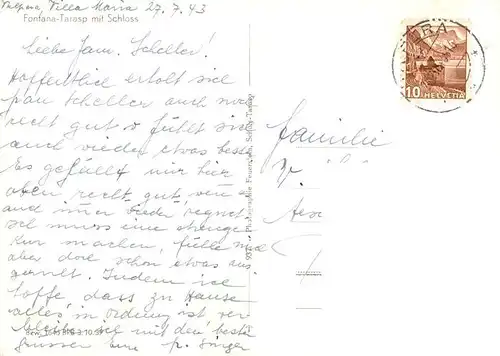 Vulpera, Villa Maria 27.7.43
Fontana-Tarasp mit Schloss
Liebe Fam. Scheller!
Hoffentlich erholt sich
Frau Scheller auch noch
recht gut & fühlt sich
auch wieder etwas besser
Es gefällt mir hier
oben recht gut, wenn es
auch immer wieder regnet
Ich muss eine strenge
Kur machen, fühle mich
aber doch schon etwas aus-
geruht. Indem ich
hoffe, dass zu Hause
alles in Ordnung ist ver-
bleibe ich mit den besten
Grüssen Eure P. Singer
Photographie Feuerstein, Schuls-Tarasp
Familie
HELVETIA
10